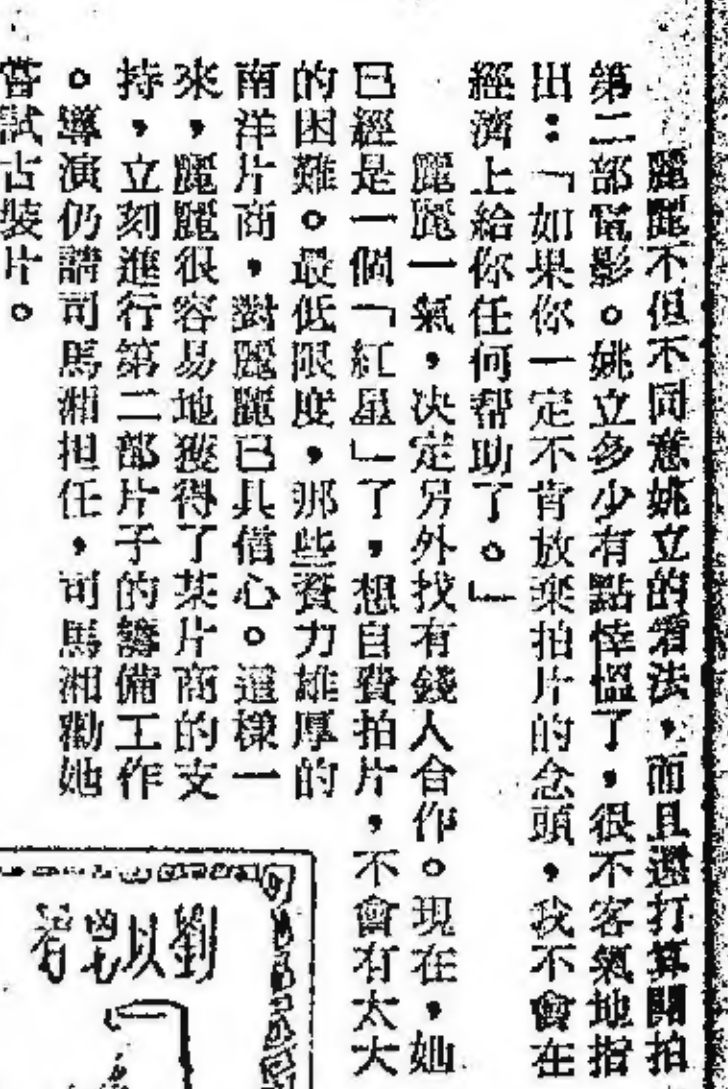 麗麗不但不同意姚立的看法,而且還打算開拍
第二部電影。姚立多少有點悻慍了,很不客氣地指
出:「如果你一定不肯放棄拍片的念頭,我不會在
經濟上給你任何幫助了。」
麗麗一氣,決定另外找有錢人合作。現在,她
已經是一個「紅星」了,想自費拍片,不會有太大
的困難。最低限度,那些資力雄厚的
南洋片商,對麗麗已具信心。這樣一
來,麗麗很容易地獲得了某片商的支
持,立刻進行第二部片子的籌備工作
。導演仍請司馬湘担任,司馬湘勸她
嘗試古裝片。
劉以鬯著